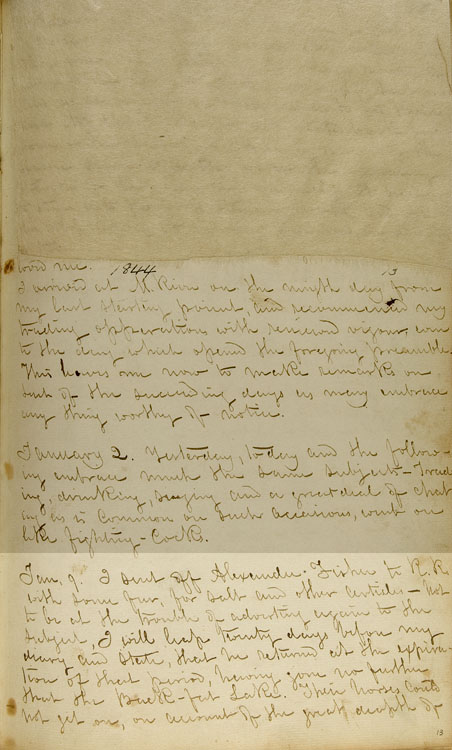 ward me. 1844 13
I arrived at M. River on the ninth day from
my last starting point, and recommenced my
trading opperations with renewed vigour, even
to the day which opened the foregoing preamble.
This leaves me now to make remarks on
such of the succeeding days as may embrace
any thing worthy of notice.
January 2. Yesterday, to day and the follow-
ing embrace much the same subjects - Trad
ing, drinking, singing and a great deal of chat
as is common on such occasions, went on
like fighting-Cocks.
Jan. 9. I sent off Alexander Fisher to R. R.
with some fur, for salt and other articles - Not
to be at the trouble of adverting again to the
subject, I will leap twenty days before my
diary and state, that he returned at the expira-
tion of that period, having gone no further
that the Back-fat Lake. Their horses could
not get on, on account of the great depth of
13